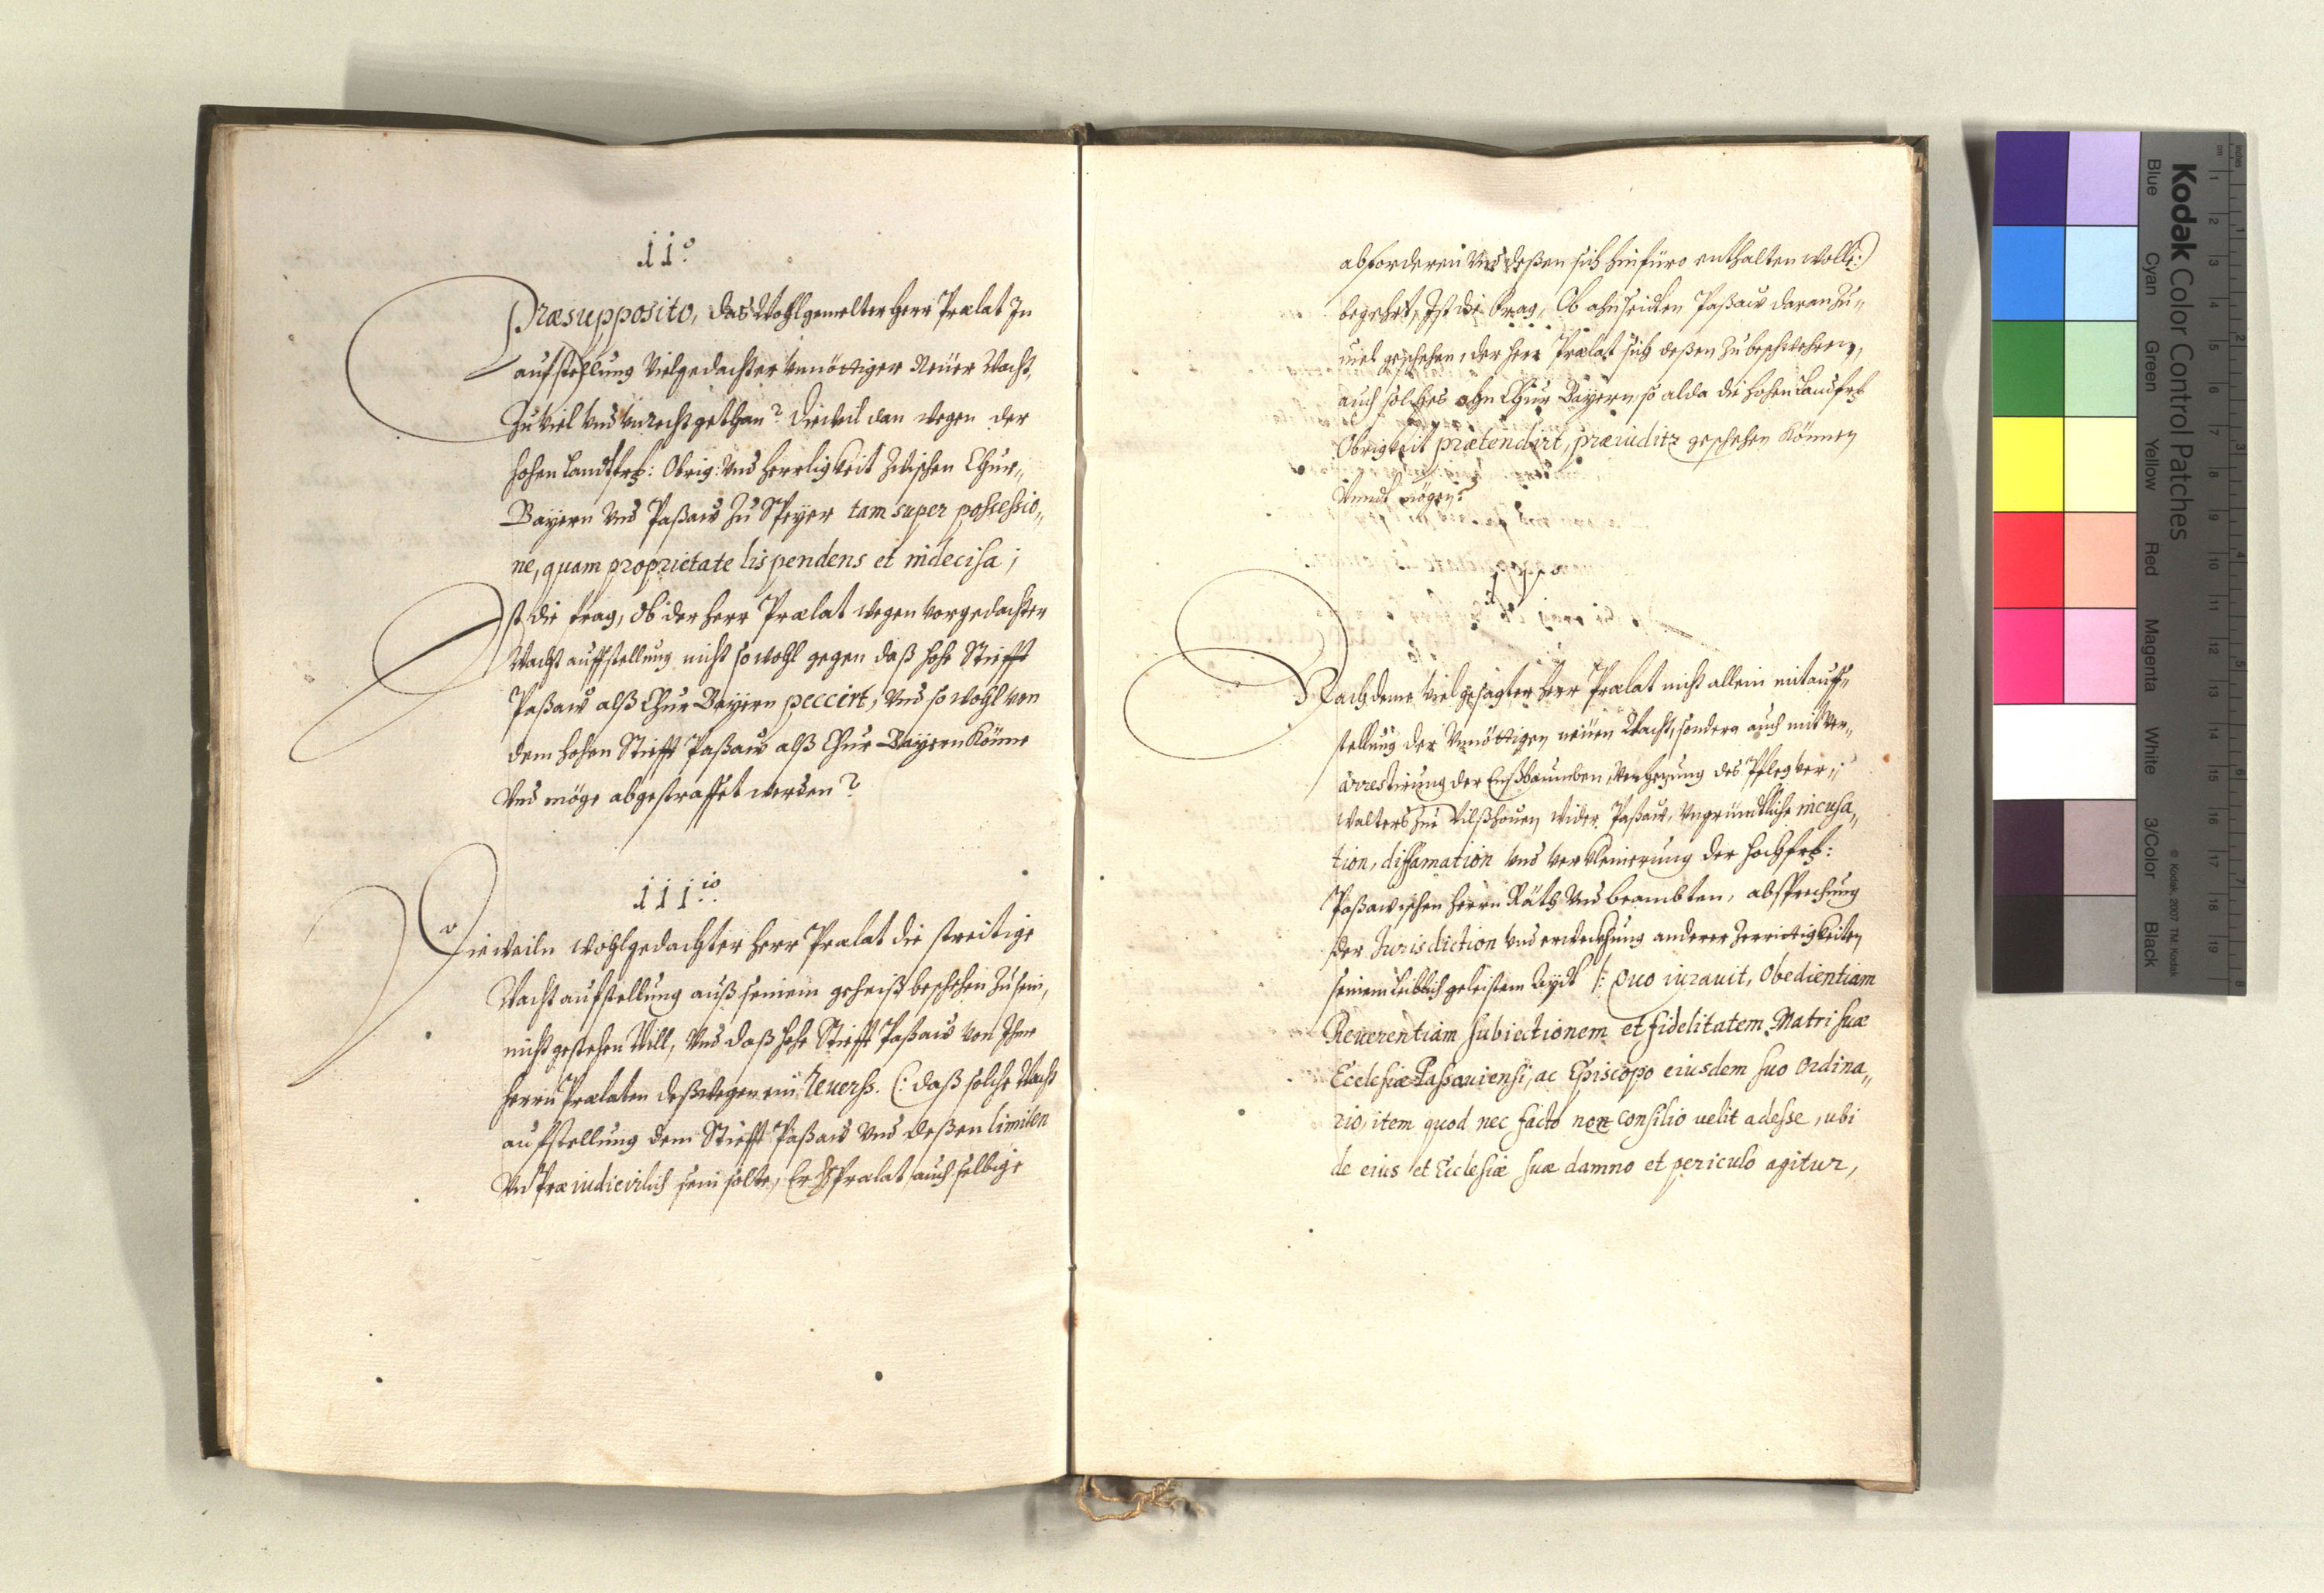 II.º
Præsupposito, das Wohlgemelter Herr Prælat In
aufstehlung Vielgedachter Unnöttiger Neüer Wacht,
Zu Viel und Unrecht gethan? Dieweil dan wegen der
hohen Landtfrst: Obrig: und Herrligkeit zwischen Chur„
Bayern und Paßaw zu Speyer tam super possessio„
ne, quam proprietate lis pendens et indecisa;
Ist die frag, Ob der Herr Prælat wegen vorgedachter
Wacht auffstellung nicht so wohl gegen daß hohe Stüfft
Paßaw alß Chur Bayern peccirt, Und so wohl von
dem hohen Stüfft Paßaw alß Chur Bayern Könne
Und möge abgestraffet werden?
III.io
Dieweiln wohlgedachter Herr Prælat die streitige
Wacht aufstellung auß seinem geheiß beschehen zu sein,
nicht gestehen Will, Und daß hohe Stüfft Paßaw von Ihme
Herrn Prælaten deßwegen ein Reuerß. (: daß solche Wacht
aufstellung dem Stüfft Paßaw Und deßen limiten
Un Præiudicirlich sein solte, Er H Prælat auch selbige
abforderen Und deßen sich hinfüro enthalten wolle:)
begehrt, Ist die Frag, Ob ahn seidten Paßaw daran Zu„
uiel geschehen, der Herr Prælat sich deßen zu beschwehren,
auch solches ohn Chur Bayern, so alda die hohen Landtfrst
Obrigkeit prætendirt, præiuditz geschehen Können
Unndt mögen?
Nachdeme Viel gesagter Herr Prælat nicht allein mit auff„
stellung der Unnöttigen neüen Wacht, sondern auch mit Ver„
arrestirung der Enßbaumben, Verhezung des Pflegver„
walters zue Vilßhouen wider Paßaw, Ungründtliche incusa„
tion, diffamation Und verkleinerung der Hochfrst:
Paßawischen Herrn Räth Und beambten, absprechung
der Jurisdiction Und erweckhung anderer Zerrittigkeiten
seinem leiblich geleistem Aydt /: quo iurauit, Obedientiam
Reuerentiam subiectionem et fidelitatem Matri suæ
Ecclesiæ Passauiensi, ac Episcopo eiusdem suo Ordina„
rio, item quod nec facto non Consilio uelit adesse, ubi
de eius et Ecclesiæ suæ damno et periculo agitur,
Kodak Color Control Patches
Blue
Cyan
Green
Yellow
Red
Magenta
White
3/Color
Black
© Kodak, 2007 TM: Kodak
cm
1
2
3
4
5
6
7
8
9
10
11
12
13
14
15
16
17
18
19
inches
1
2
3
4
5
6
7
8